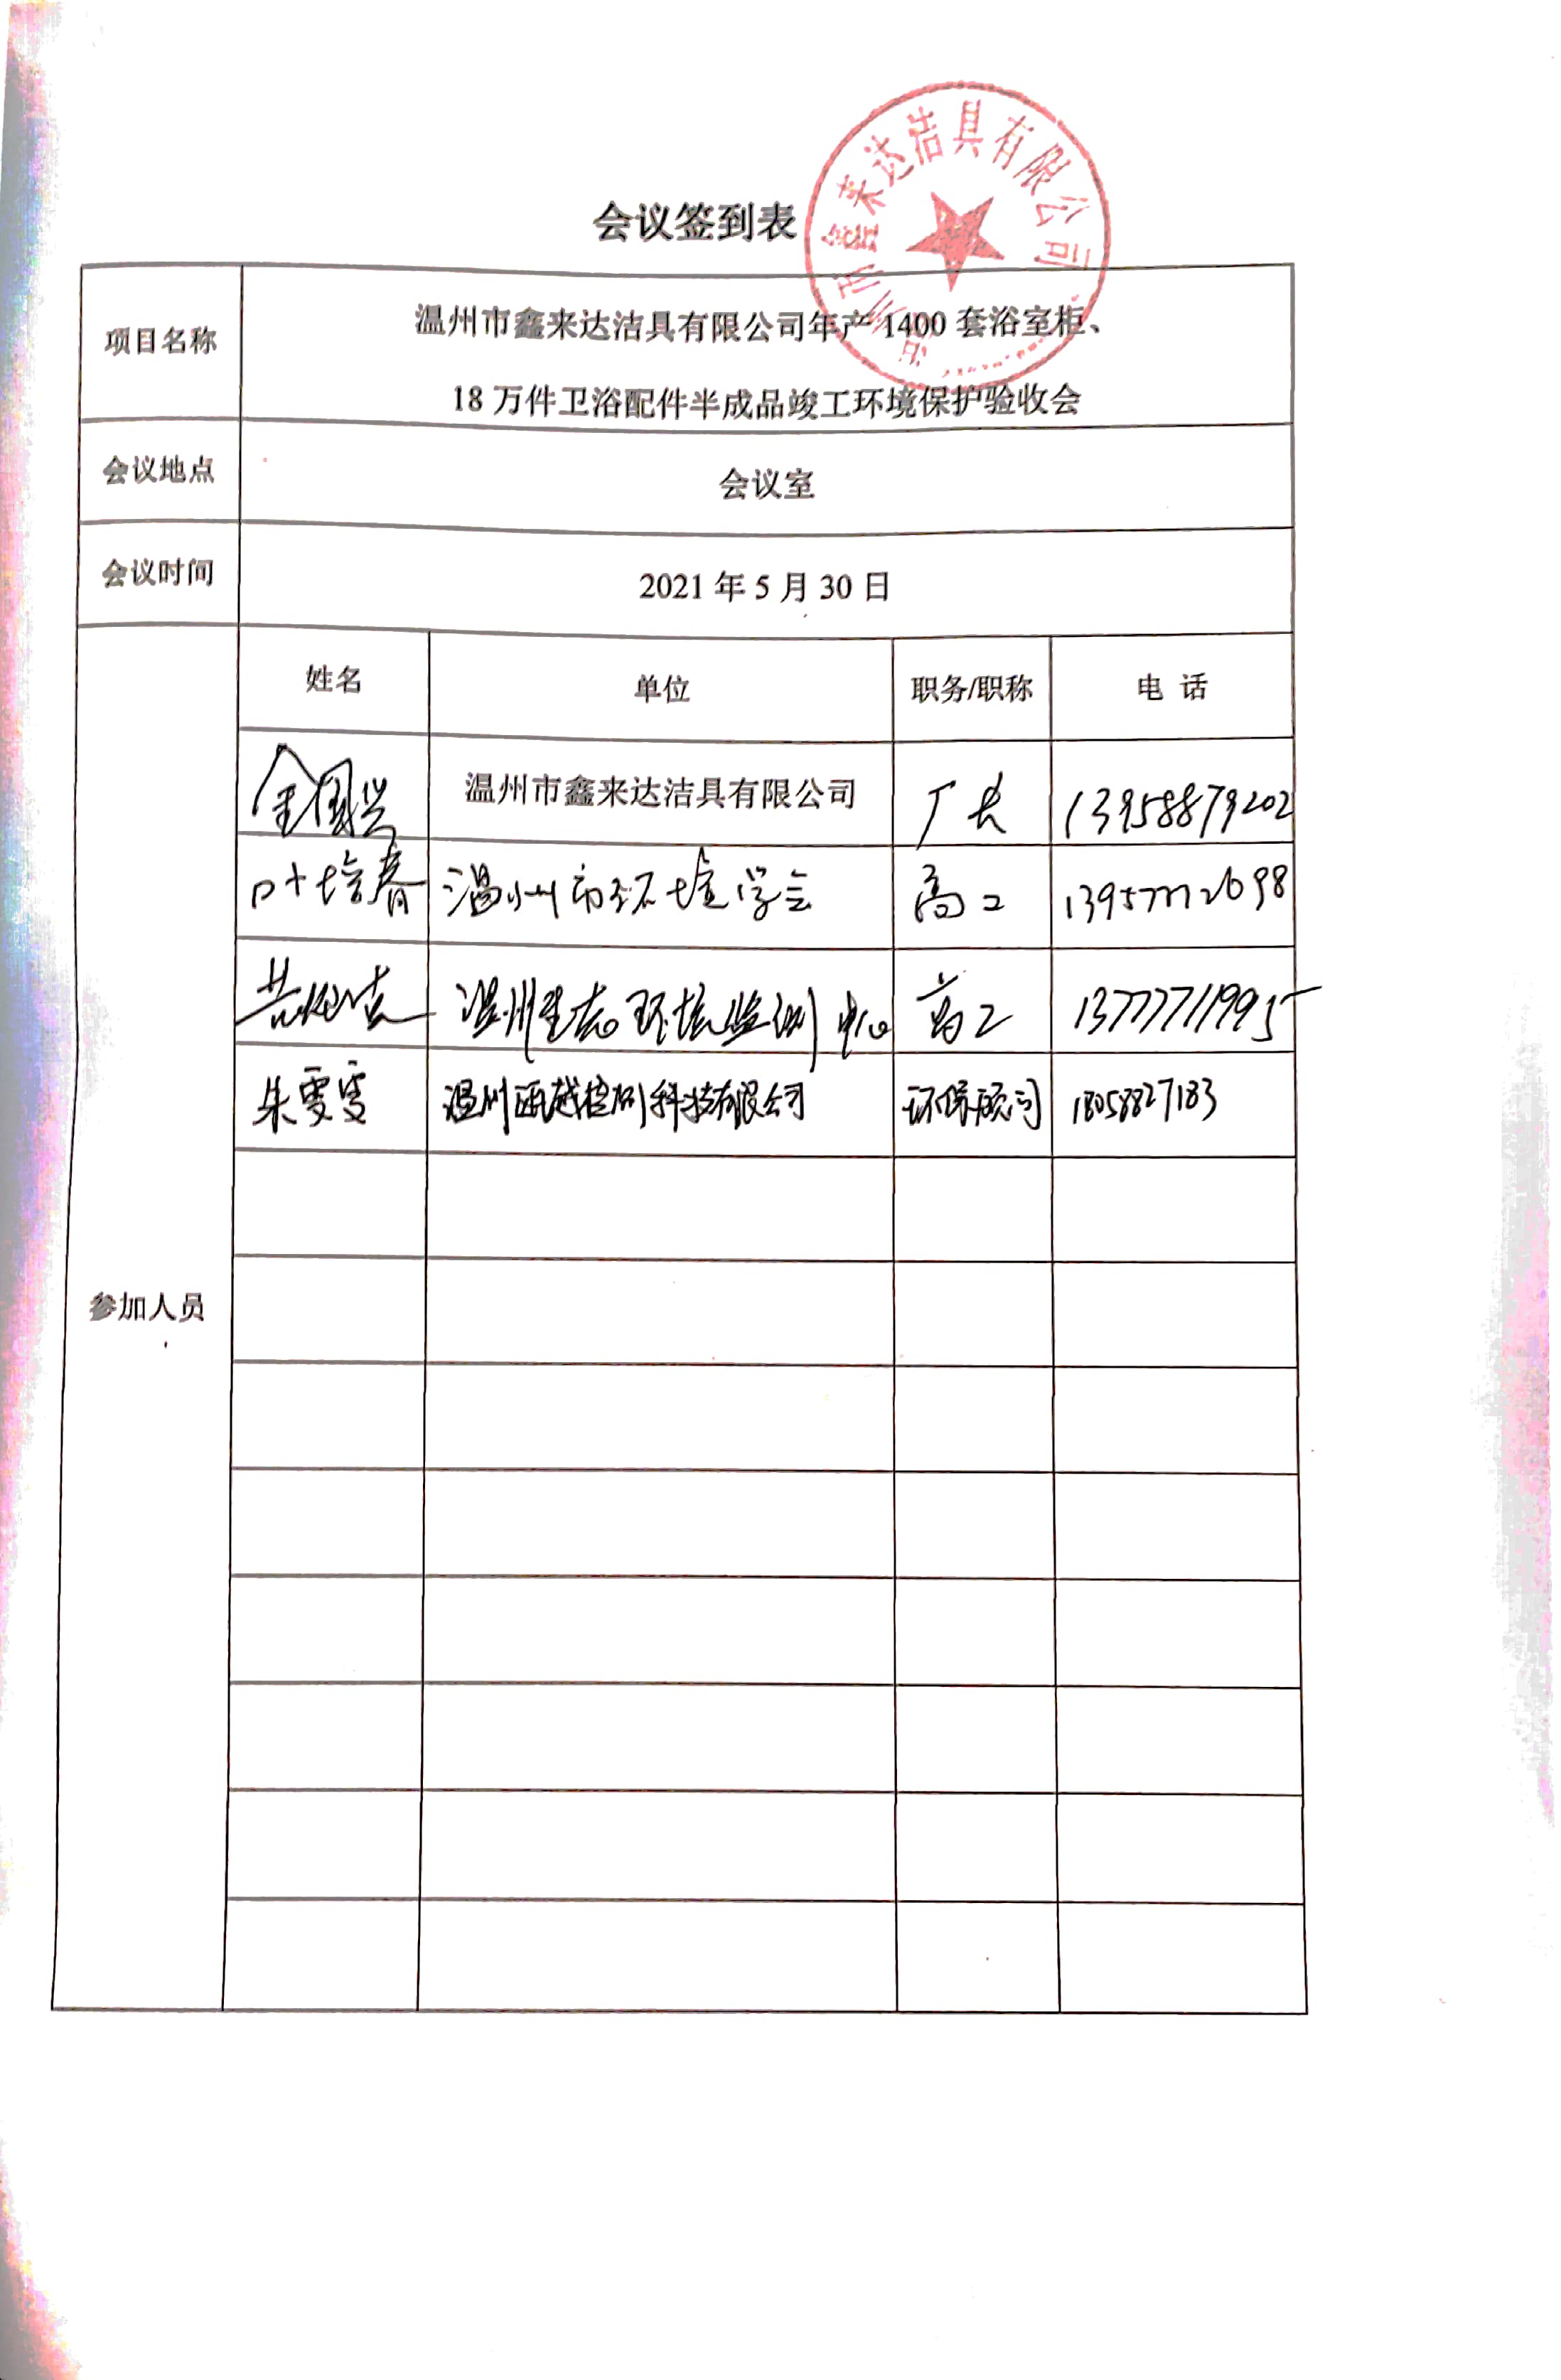 温州市鑫来达洁具有限公司
会议签到表
项目名称
温州市鑫来达洁具有限公司年产1400套浴室柜、
18万件卫浴配件半成品竣工环境保护验收会
会议地点
会议室
会议时间
2021年5月30日
参加人员
姓名 单位 职务/职称 电 话
金国兴 温州市鑫来达洁具有限公司 厂长 13958879202
叶培春 温州市环境学会 高工
温州生态环境监测中心 高工 13777711995
朱雯雯 温州瓯越检测科技有限公司 环保顾问